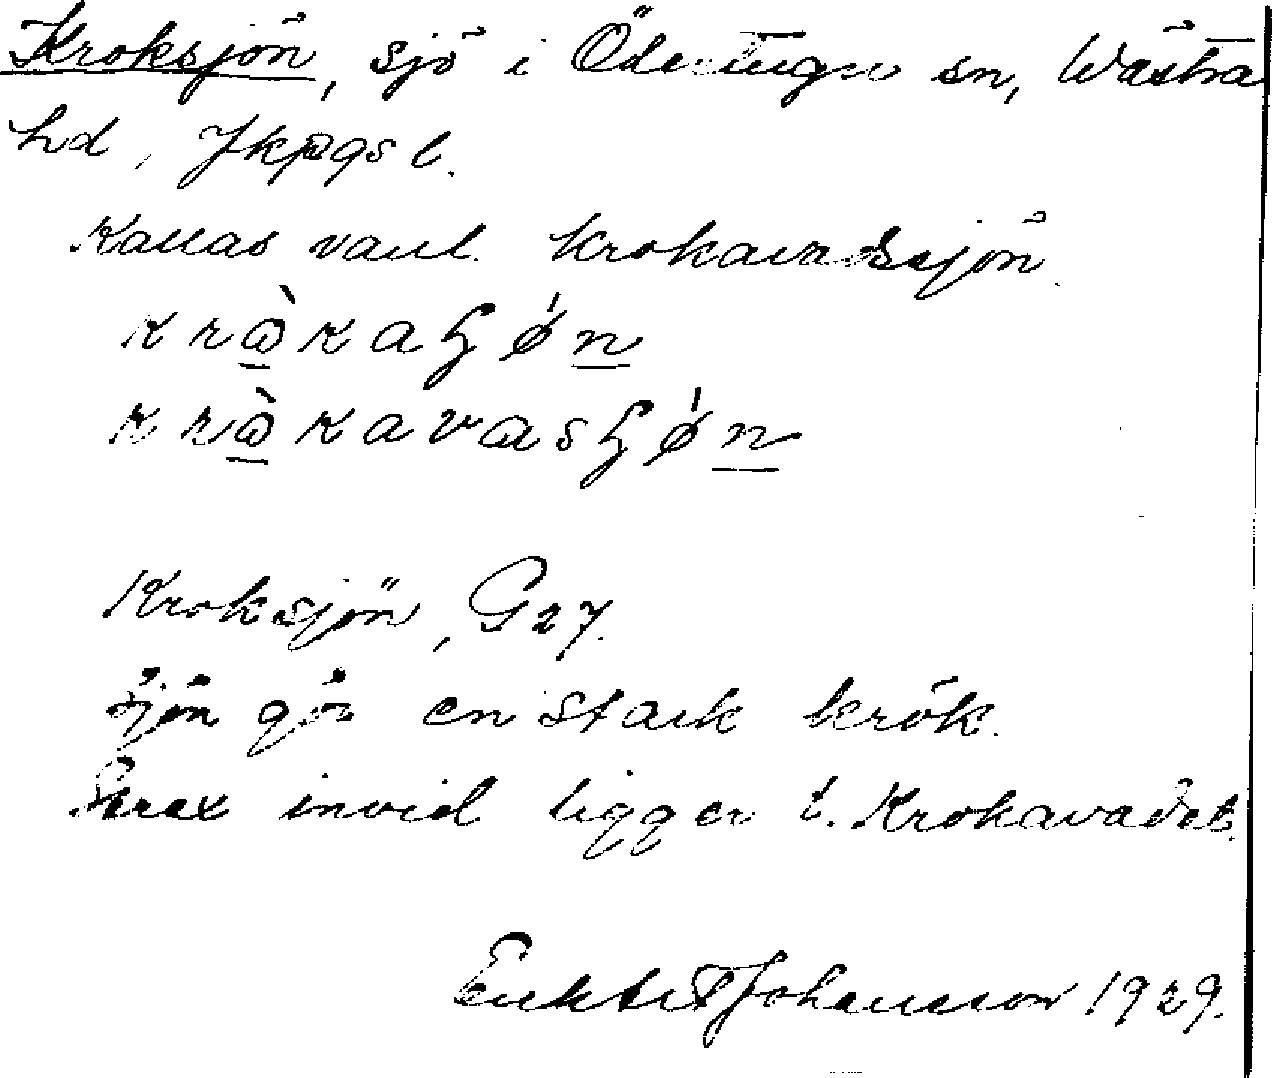 Kroksjön, sjö i Öde­stugu sn, Wästra
hd, Jkpgs l.
Kallas vanl. krokavadssjön.
krò̲kaɧǿn̲
krò̲kavasɧǿn̲
Kroksjön, G27.
Sjön gör en stark krök.
Strax invid ligger t. Krokavadet.
Johansson 1929.